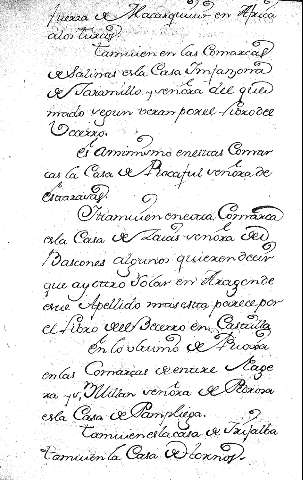 fuerza de Mazarquivir en Africa
a los turcos
tamvien en las Comarcas
de Salinas es la Casa Infanzona
de Jaramillo y señora del que
mado segun veran por el libro del
Vecerro.
es a mimismo en estas Comar
cas la Casa de Rocaful señora de
I tamvien en esta Comarca
es la Casa de señora de
Bascones algunos quieren decir
que ay otro Solar en Aragon de
este Apellido mas esta parece por
el Libro de el Becerro en Castilla
en lo ultimo de
en las Comarcas de entre Nage
ra y S, Millan señora de
es la Casa de Pampliega.
tamvien es la casa de Grijalba
tamvien la Casa de hornos.